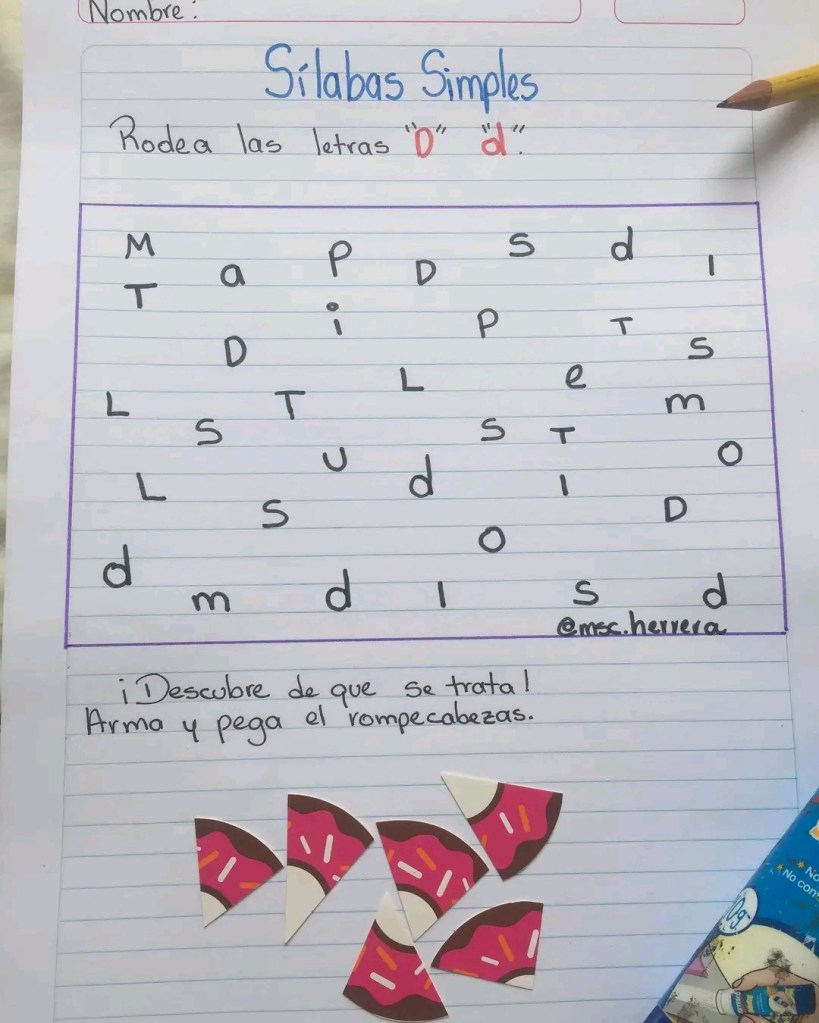 Nombre:
Sílabas Simples
Rodea las letras "D" "d".
M a P D S d l
T i P T
D L e S
L S T S T m
U d l O
L S O D
d m d l S d
@msc.herrera
¡Descubre de que se trata!
Arma y pega el rompecabezas.
No
No con